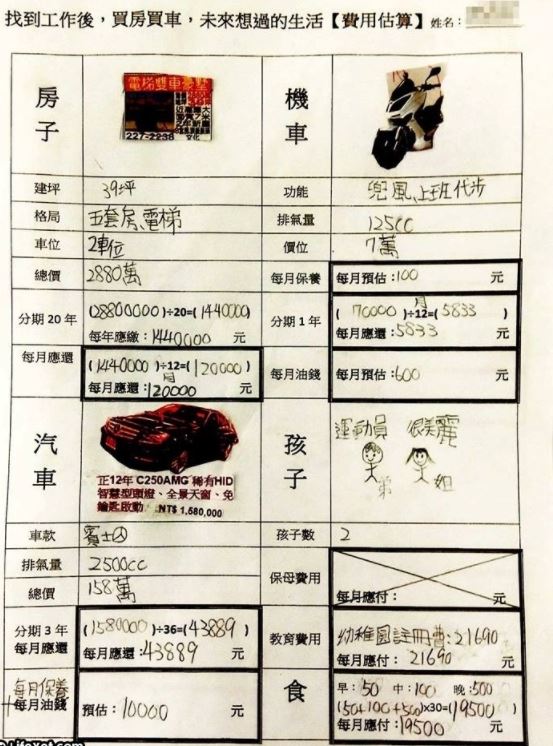 找到工作後，買房買車，未來想過的生活【費用估算】 姓名：
房子
電梯雙車豪墅
227-2238
機車
建坪 39坪
功能 兜風、上班代步
格局 五套房、電梯
排氣量 125cc
車位 2車位
價位 7萬
總價 2880萬
每月保養 每月預估：100 元
分期 20 年 (28800000)÷20=(1440000)
每年應繳：1440000 元
分期 1 年 (70000)÷12=(5833)
月
每月應還：5833 元
每月應還 (1440000)÷12=(120000)
月
每月應還：120000 元
每月油錢 每月預估：600 元
汽車
正12年 C250AMG 稀有HID
智慧型頭燈、全景天窗、免
鑰匙啟動 NT$ 1,580,000
孩子
運動員 很美麗
弟 姐
車款 賓士
孩子數 2
排氣量 2500cc
總價 158萬
保母費用 每月應付： 元
分期 3 年
每月應還
(1580000)÷36=(43889)
每月應還：43889 元
教育費用 幼稚園註冊費：21690
每月應付：21690 元
每月保養
+每月油錢 預估：10000 元
食
早：50 中：100 晚：500
(50+100+500)x30=(19500)
每月應付：19500 元